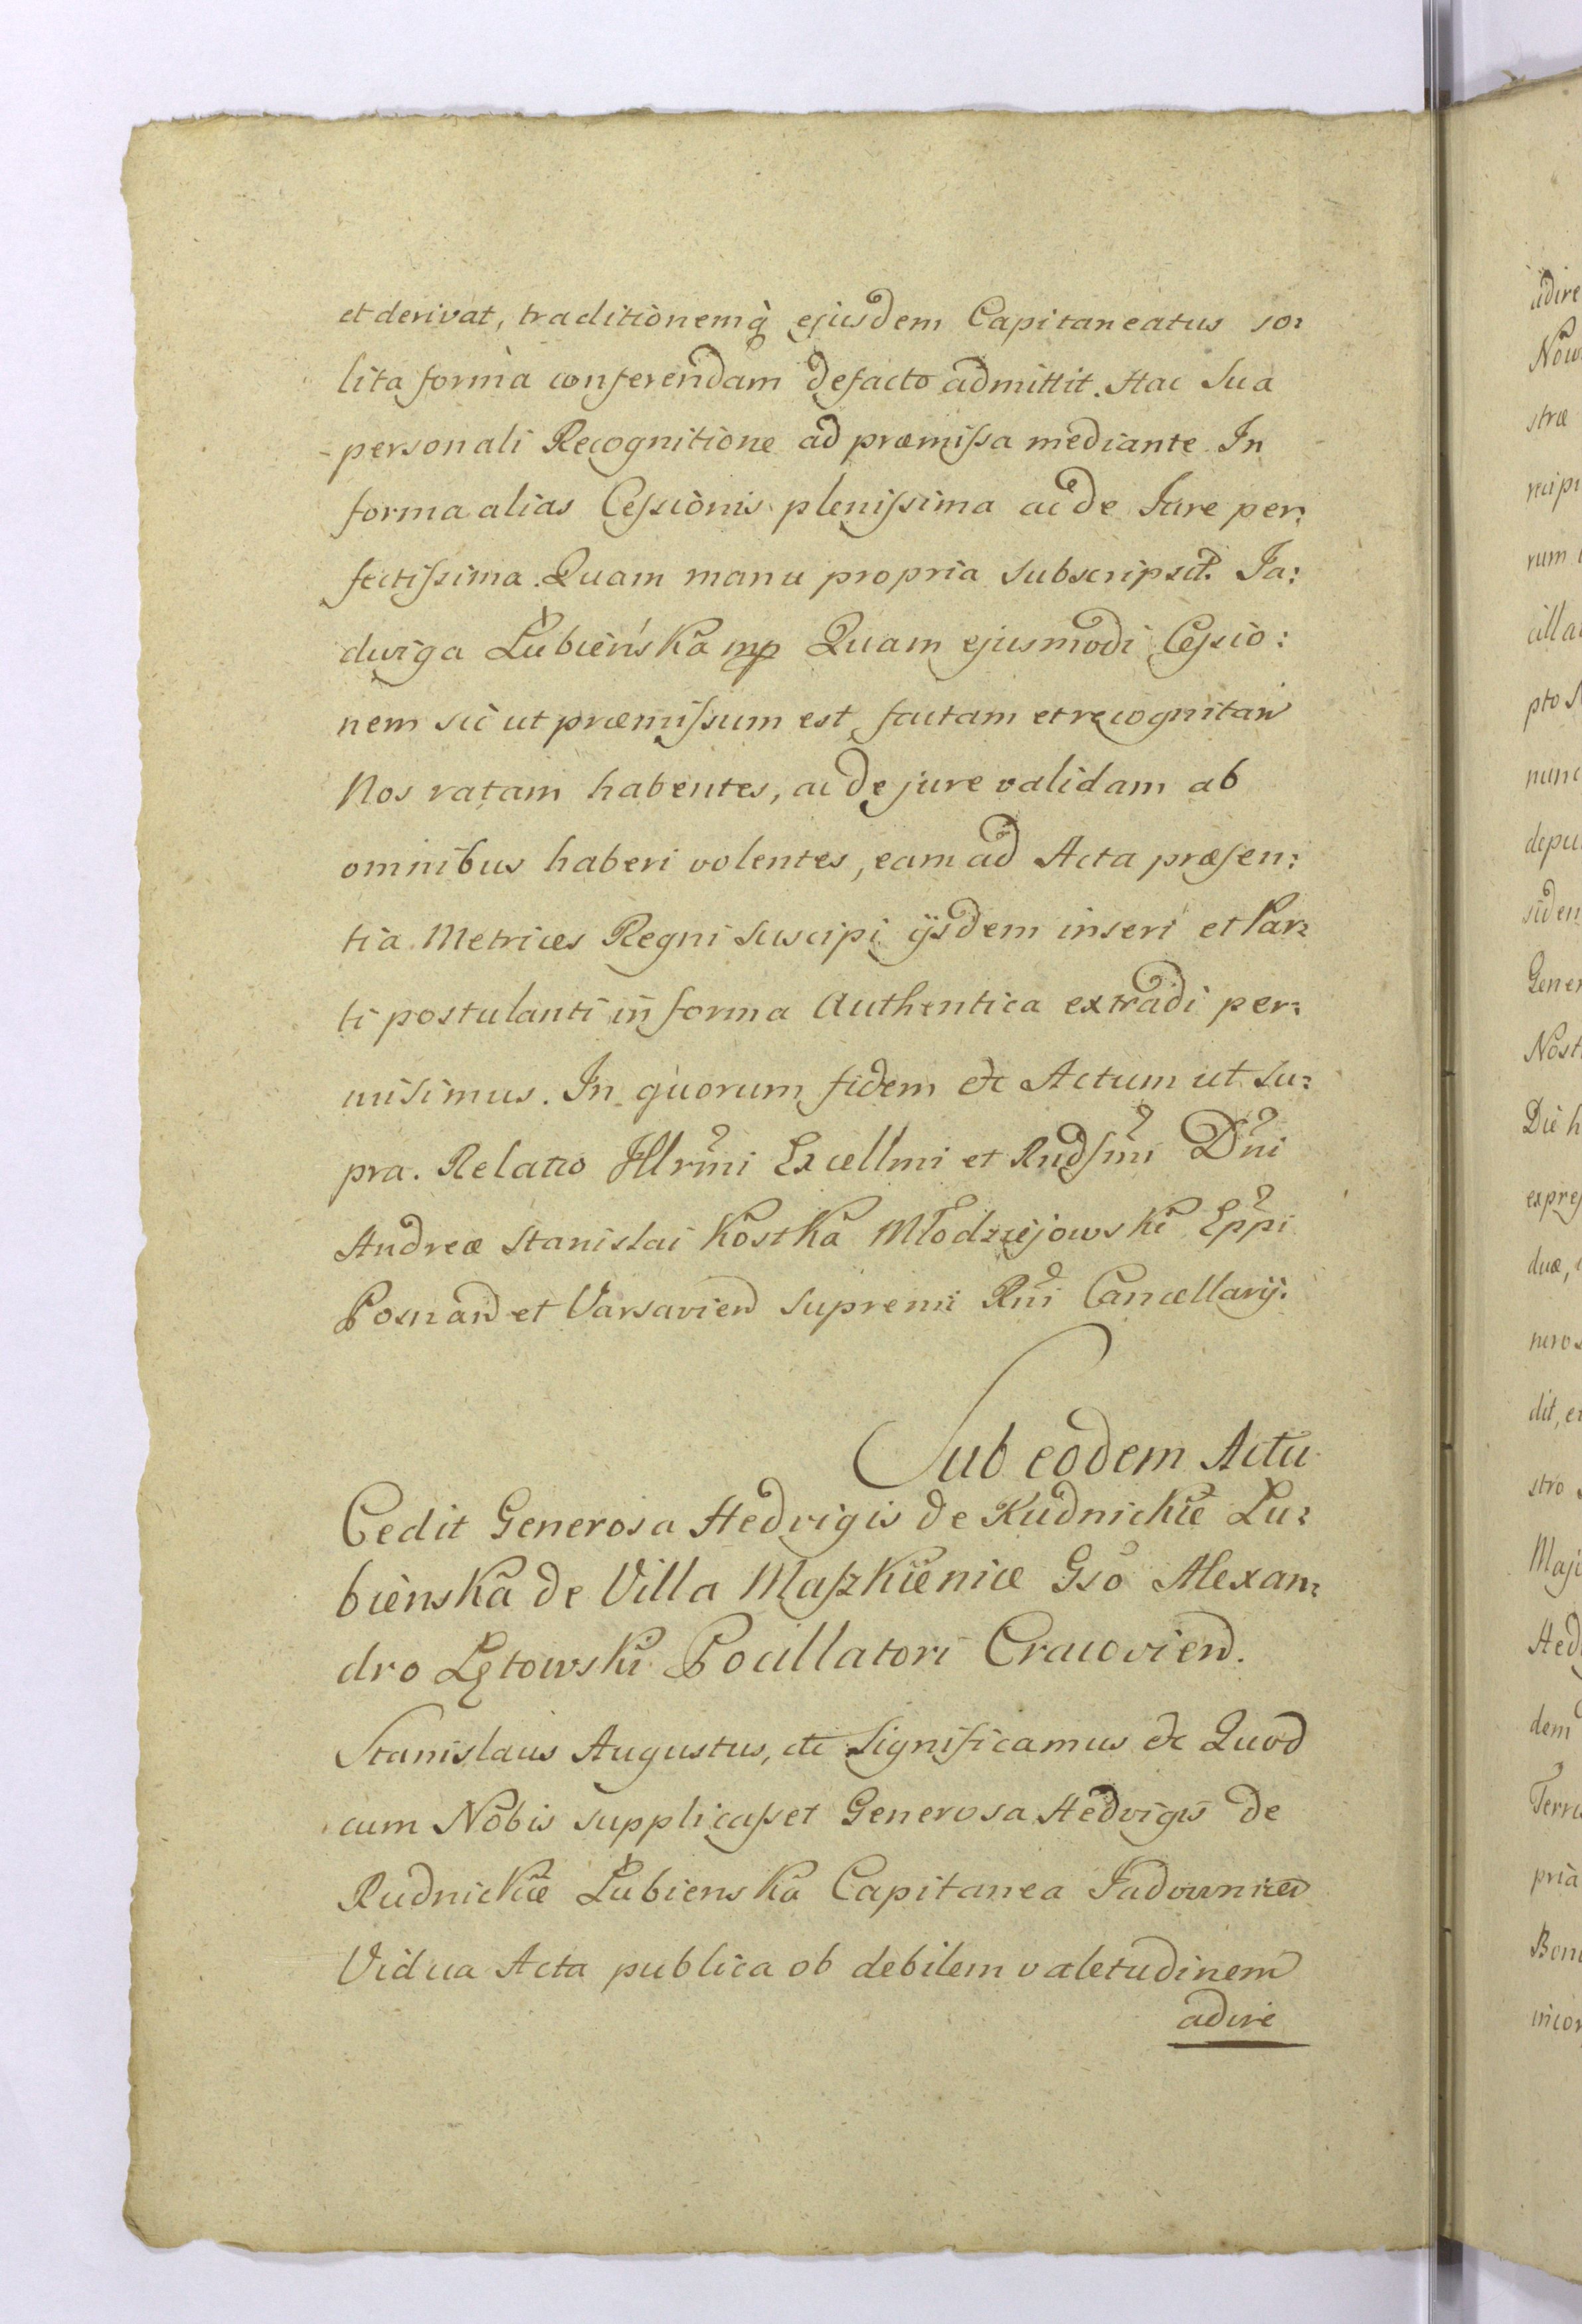 et derivat, traditionemq̀ ejusdem Capitaneatus so:
lita forma conferendam defacto admittit. Hac Sua
personali Recognitione ad præmissa mediante In
forma alias Cessionis plenissima ac de Iure per:
fectissima. Quam manu propria subscripsit. Ja:
dwiga Łubieńska mp Quam ejusmodi Cessio:
nem sic ut præmissum est, factam et recognitam
Nos ratam habentes, ac de jure validam ab
omnibus haberi volentes, eam ad Acta præsen:
tia Metrices Regni suscipi ijsdem inseri et Par:
ti postulanti in forma Authentica extradi per:
misimus. In quorum fidem etc Actum ut su:
pra. Relatio Illrmi Excellmi et Rndsmi Dni
Andreæ Stanislai Kostka Młodziejowski Eppi
Posnan et Varsavien Supremi Rni Cancellarij.
Sub eodem Actu
Cedit Generosa Hedvigis de Rudnickie Lu:
bienska de Villa Maszkienice Gso Alexan:
dro Lętowski Pocillatori Cracovien.
Stanislaus Augustus, etc Significamus etc Quod
cum Nobis supplicasset Generosa Hedvigis de
Rudnickie Łubienska Capitanea Jadovnicen
Vidua Acta publica ob debilem valetudinem
adire